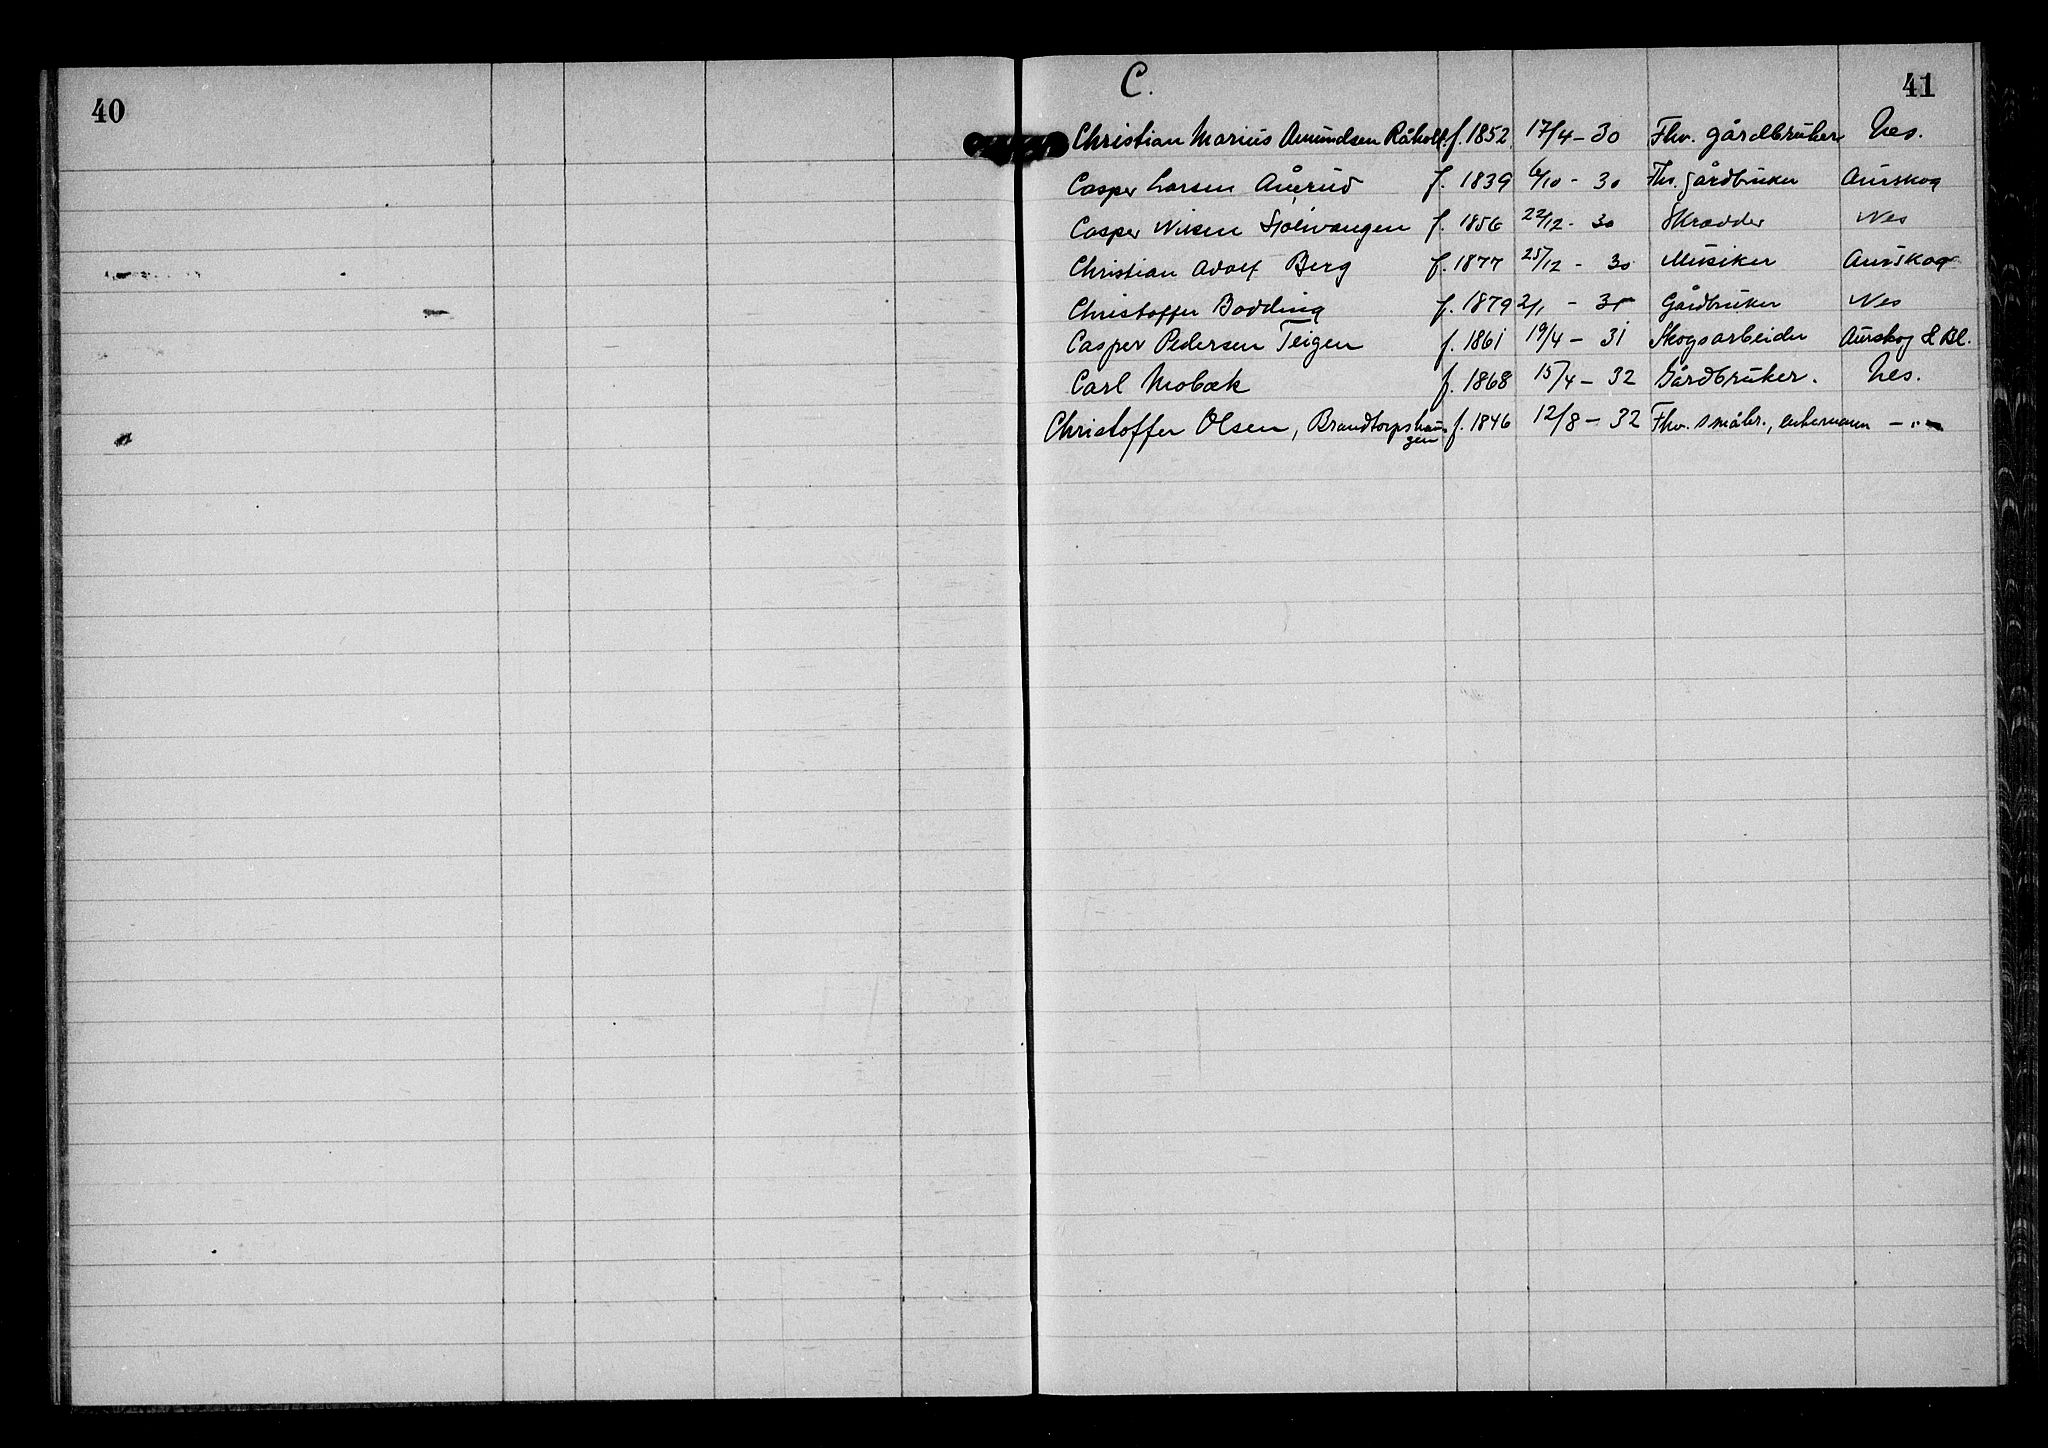 40
C.
41
Christian Marius Amundsen Råholt. f. 1852 17/4 - 30 Fhv. gårdbruker Nes.
Casper Larsen Aurud f. 1839 6/10 - 30 Fhv. gårdbruker Aurskog
Casper Nilsen f. 1856 22/12 - 30 Skrædder Nes
Christian Adolf Berg f. 1877 25/12 - 30 Musiker Aurskog
Christoffer Bødding f. 1879 2/1 - 31 Gårdbruker Nes
Casper Pedersen Teigen f. 1861 19/4 - 31 Skogsarbeider Aurskog & Bl.
Carl Mobæk f. 1868 15/4 - 32 Gårdbruker. Nes.
Christoffer Olsen, Brandtorpshau- f. 1846 12/8 - 32 Fhv. småbr., enkemann - " -
gen